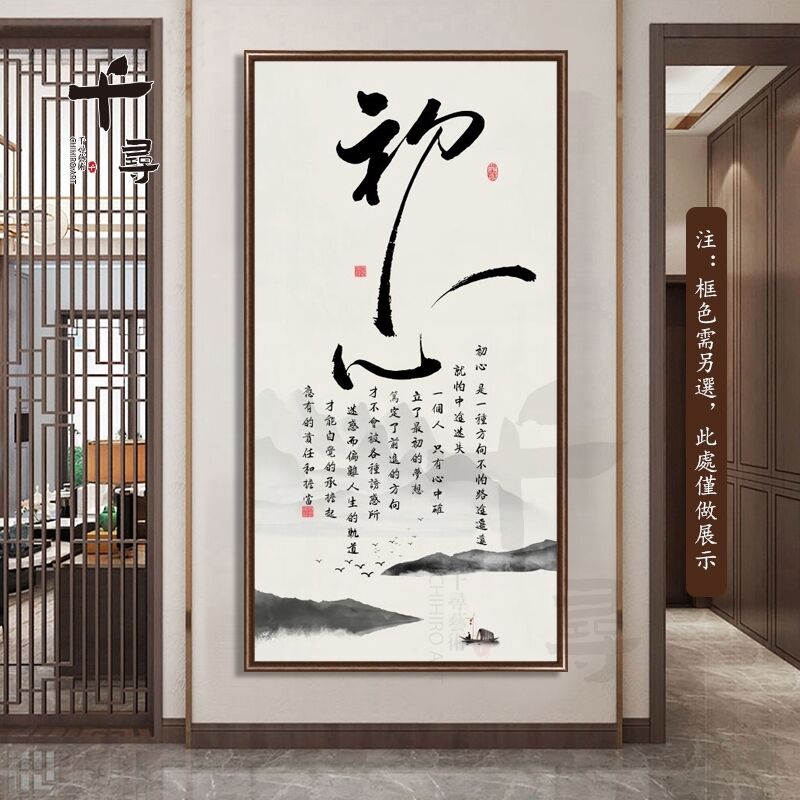 千
尋
千尋藝術
CHIHIRO ART
初心
初心 是一種方向不怕路途遙遠
就怕中途迷失
一個人 只有心中確
立了最初的夢想
篤定了前進的方向
才不會被各種誘惑所
迷惑而偏離人生的軌道
才能自覺的承擔起
應有的責任和擔當
注：框色需另選，此處僅做展示
千尋藝術
CHIHIRO ART
千
尋